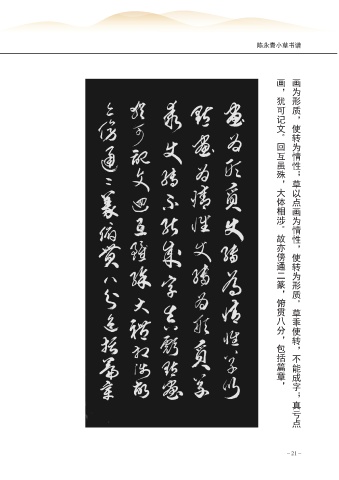 陈永贵小草书谱
画为形质，使转为情性；草以点画为情性，使转为形质，草乖使转，不能成字；真亏点
画，犹可记文。回互虽殊，大体相涉。故亦傍通二篆，俯贯八分，包括篇章，
畫为形质使转为情性草以
點畫为情性使转为形质草
乖使转不能成字真亏點畫
犹可記文迴互雖殊大體相涉故
亦傍通二篆俯贯八分包括篇章
– 21 –